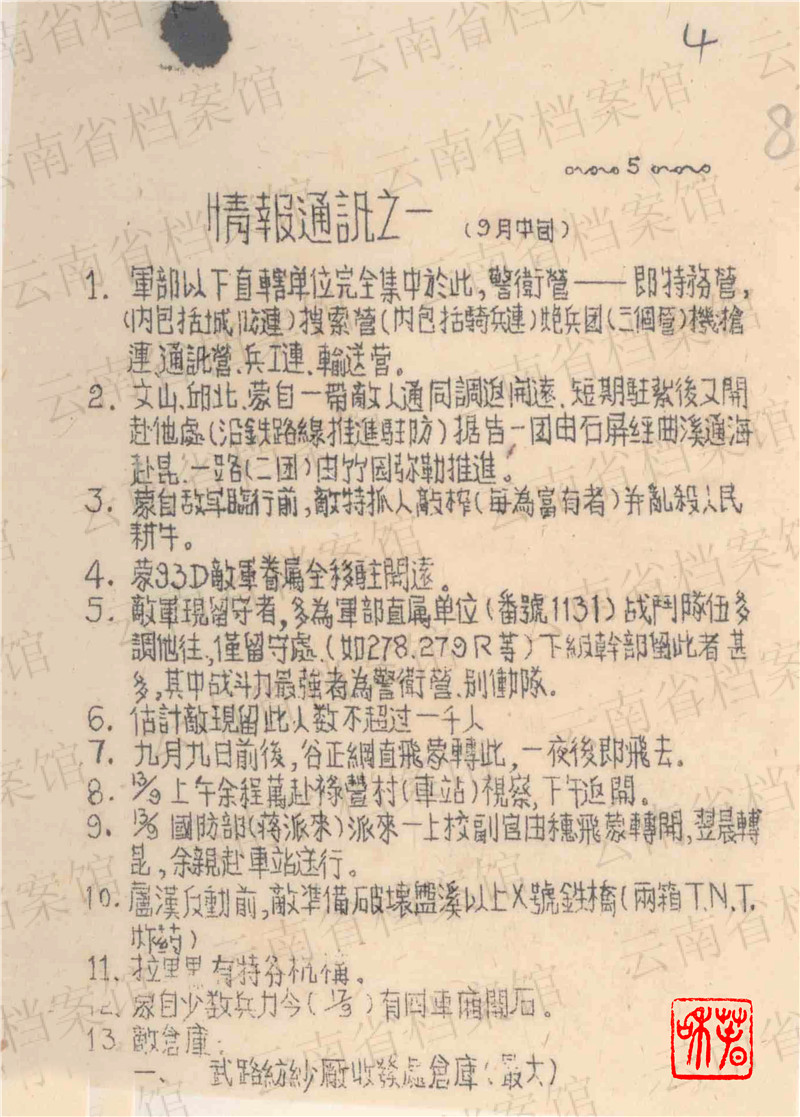 4
8
5
情報通訊之一 (9月中旬)
1. 軍部以下直轄单位完全集中於此,警衛營——即特務營,
(内包括城防連)搜索營(内包括騎兵連)炮兵团(三個營)機搶
連、通訊營、兵工連、輸送营。
2. 文山、邱北、蒙自一帶敵人通同調返開遠、短期駐紮後又開
赴他處(沿鉄路線推進駐防)据皆一团由石屏經曲溪通海
赴昆、一路(二团)由竹园弥勒推進。
3. 蒙自敌軍臨行前,敵特抓人敲榨(每為富有者)并亂殺人民
耕牛。
4. 蒙93D敵軍眷屬全移駐開遠。
5. 敵軍現留守者,多為軍部直属单位(番號1131)战鬥隊伍多
調他往、僅留守處、(如278.279R等)下級幹部留此者甚
多,其中战斗力最強者為警衛營、別働隊。
6. 估計敵現留此人数不超过一千人
7. 九月九日前後,谷正綱直飛蒙轉此,一夜後即飛去。
8. 13/9上午余程萬赴祿豐村(車站)視察,下午返開。
9. 13/9國防部(蒋派來)派來一上校副官由穗飛蒙轉開,翌晨轉
昆,余親赴車站送行。
10. 盧漢反動前,敵準備破壞盤溪以上X號鉄橋(兩箱T.N.T.
炸药)
11. 拉里黑有特务机構。
12. 蒙自少数兵力今( /9)有四車廂開石。
13. 敵倉庫:
一、 武路紡紗廠收發處倉庫(最大)